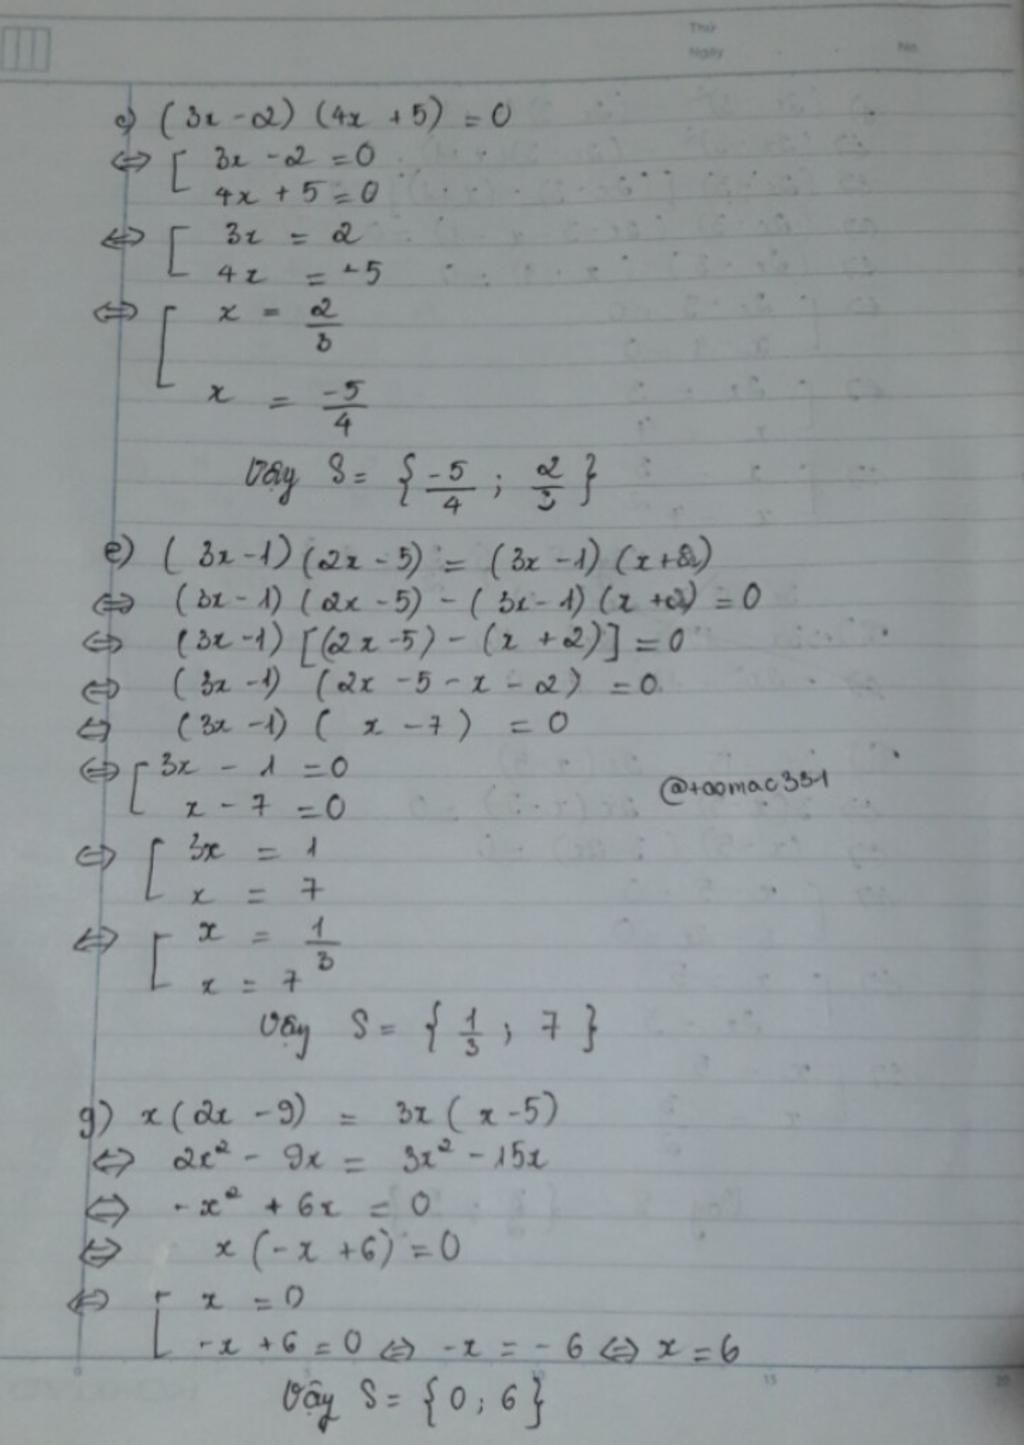 Thứ
Ngày No.
c) (3x - 2) (4x + 5) = 0
⇔ [ 3x - 2 = 0
4x + 5 = 0
⇔ [ 3x = 2
4x = -5
⇔ [ x = 2/3
x = -5/4
Vậy S = { -5/4 ; 2/3 }
e) (3x - 1) (2x - 5) = (3x - 1) (x + 2)
⇔ (3x - 1) (2x - 5) - (3x - 1) (x + 2) = 0
⇔ (3x - 1) [(2x - 5) - (x + 2)] = 0
⇔ (3x - 1) (2x - 5 - x - 2) = 0
⇔ (3x - 1) (x - 7) = 0
⇔ [ 3x - 1 = 0
x - 7 = 0
@toomac331
⇔ [ 3x = 1
x = 7
⇔ [ x = 1/3
x = 7
Vậy S = { 1/3 ; 7 }
g) x(2x - 9) = 3x(x - 5)
⇔ 2x² - 9x = 3x² - 15x
⇔ -x² + 6x = 0
⇔ x(-x + 6) = 0
⇔ [ x = 0
-x + 6 = 0 ⇔ -x = -6 ⇔ x = 6
0 15 20
Vậy S = { 0 ; 6 }